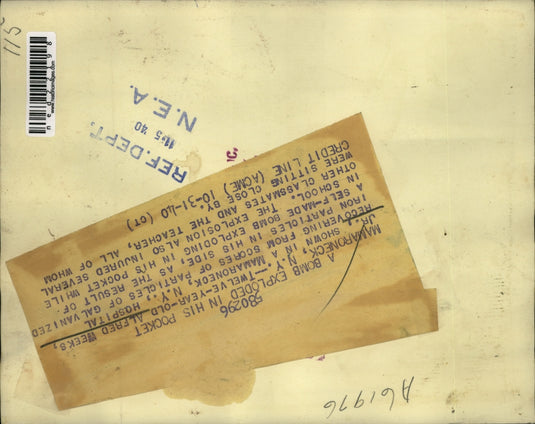 REF. DEPT.
11 5 '40
N.E.A.
580296
A BOMB EXPLODED IN HIS POCKET
MAMARONECK, N.Y.--TWELVE-YEAR-OLD ALFRED WEEKS,
JR., SHOWN IN A MAMARONECK, N.Y., HOSPITAL
RECOVERING FROM SCORES OF PARTICLES OF GALVANIZED
IRON PARTICLES IN HIS SIDE, AS THE RESULT OF
A SELF-MADE BOMB EXPLODING IN HIS POCKET WHILE
IN SCHOOL. THE EXPLOSION ALSO INJURED SEVERAL
OTHER CLASSMATES AND THE TEACHER, ALL OF WHOM
WERE SITTING CLOSE BY.
CREDIT LINE (ACME) 10-31-40 (CT)
A61976
115